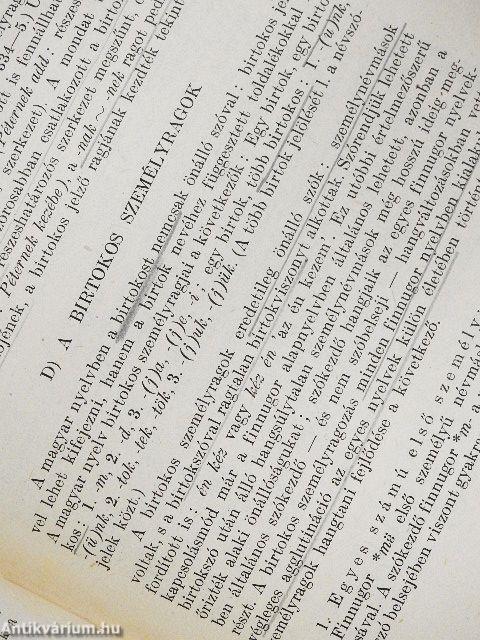 634—5.) U
ott is fennállhatott
Péternek add : részes
szerkezet). A mondat
morosabban csatlakozott a birto
részeshatározós szerkezet megszűnt,
Péternek kezébe), a -nak ~ -nek ragot pedig
jének, a birtokos jelző ragjának kezdték tekint
D) A BIRTOKOS SZEMÉLYRAGOK
A magyar nyelvben a birtokost nemcsak önálló szóval : birtokos je
vel lehet kifejezni, hanem a birtok nevéhez függesztett toldalékokkal
A magyar nyelv birtokos személyragjai a következők : Egy birtok, egy birto
kos : 1. -m, 2. -d, 3. -(j)a, -(j)e, -i ; egy birtok, több birtokos : 1. -(ü)nk,
-(ü)nk, 2. -tok, -tek, -tök, 3. -(j)uk, -(j)ük. (A több birtok jelölését l. a névszó-
jelek közt.)
A birtokos személyragok eredetileg önálló szók : személynévmások
voltak, s a birtokszóval ragtalan birtokviszonyt alkottak. Szórendjük lehetett
fordított is : én kéz vagy kéz én 'az én kezem'. Ez utóbbi értelmezőszerű
kapcsolásmód már a finnugor alapnyelvben általános lehetett, azonban a
birtokszó után álló hangsúlytalan személynévmások még hosszú ideig meg-
őrizték alaki önállóságukat ; szókezdő hangjaik az egyes finnugor nyelvek-
ben általános szókezdő — és nem szóbelseji — hangváltozásokban vet
részt. A birtokos személyragozás minden finnugor nyelvben kialak
végleges agglutináció az egyes nyelvek külön életében történ
személyragok hangtani fejlődése a következő.
1. Egyes számú első személy
Finnugor *mɜ első személyű névmás
ásával. A szókezdő finnugor *m- a m
zó belsejében viszont gyakr
Antikvárium.hu